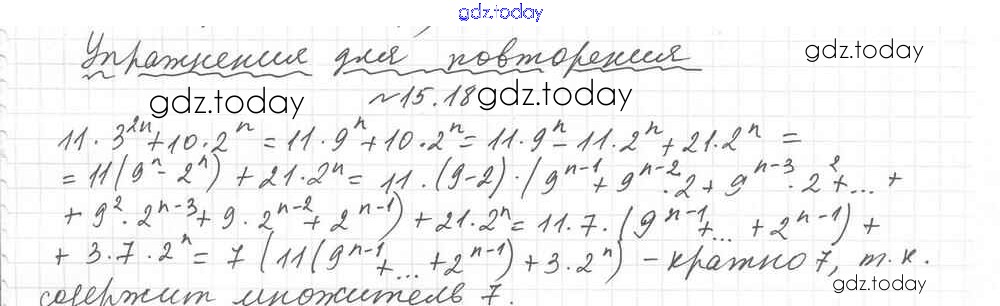 gdz.today
Упражнения для повторения gdz.today
gdz.today №15.18 gdz.today
11·3²ⁿ+10·2ⁿ=11·9ⁿ+10·2ⁿ=11·9ⁿ-11·2ⁿ+21·2ⁿ=
=11(9ⁿ-2ⁿ)+21·2ⁿ=11·(9-2)·(9ⁿ⁻¹+9ⁿ⁻²·2+9ⁿ⁻³·2²+...+
+9²·2ⁿ⁻³+9·2ⁿ⁻²+2ⁿ⁻¹)+21·2ⁿ=11·7·(9ⁿ⁻¹+...+2ⁿ⁻¹)+
+3·7·2ⁿ=7(11(9ⁿ⁻¹+...+2ⁿ⁻¹)+3·2ⁿ) - кратно 7, т.к.
gdz.today
содержит множитель 7.